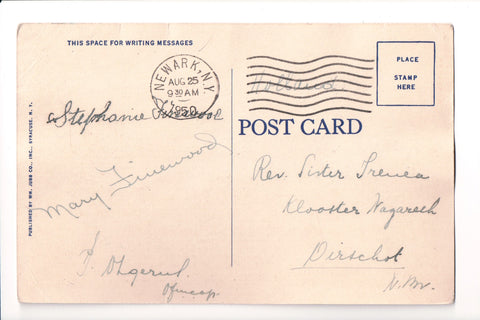 THIS SPACE FOR WRITING MESSAGES
NEWARK, N.Y.
AUG 25
9 30 AM
1950
PLACE
STAMP
HERE
Holland
Stephanie
POST CARD
Mary Finewood
Rev. Sister Irenea
Klooster Nazareth
Oirschot
N. Br.
PUBLISHED BY WM. JUBB CO., INC., SYRACUSE, N. Y.